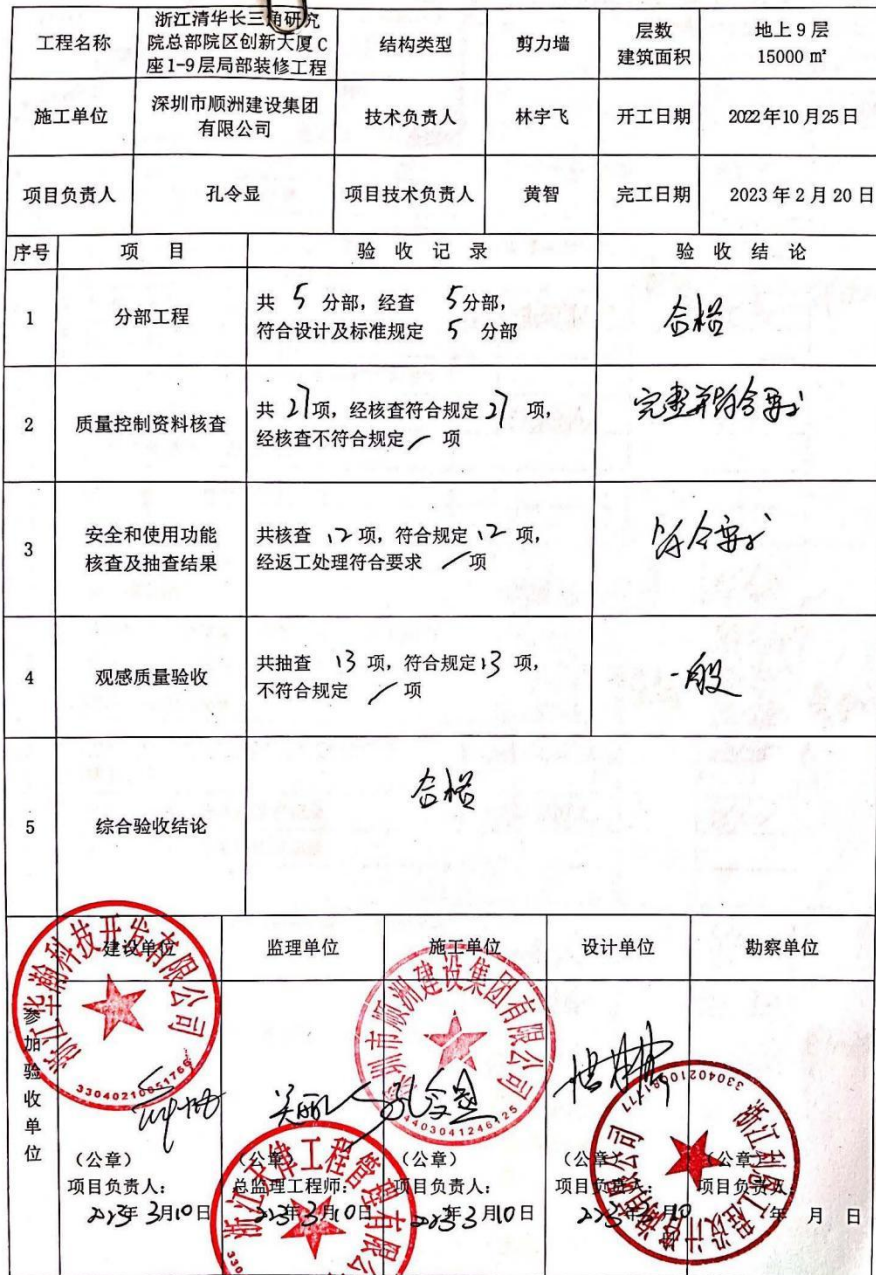 工程名称
浙江清华长三角研究
院总部院区创新大厦C
座1-9层局部装修工程
结构类型
剪力墙
层数
建筑面积
地上9层
15000 ㎡
施工单位
深圳市顺洲建设集团
有限公司
技术负责人
林宇飞
开工日期
2022年10月25日
项目负责人
孔令显
项目技术负责人
黄智
完工日期
2023年2月20日
序号
项 目
验 收 记 录
验 收 结 论
1
分部工程
共 5 分部,经查 5分部,
符合设计及标准规定 5 分部
合格
2
质量控制资料核查
共 27项,经核查符合规定 27 项,
经核查不符合规定 / 项
完整并符合要求
3
安全和使用功能
核查及抽查结果
共核查 12 项,符合规定 12 项,
经返工处理符合要求 / 项
符合要求
4
观感质量验收
共抽查 13 项,符合规定 13 项,
不符合规定 / 项
一般
5
综合验收结论
合格
参加验收单位
建设单位
监理单位
施工单位
设计单位
勘察单位
浙江华瀚科技开发有限公司
深圳市顺洲建设集团有限公司
4403041246125
孔令显
(公章)
项目负责人:
2023年3月10日
(公章)
总监理工程师:
2023年3月10日
(公章)
项目负责人:
2023年3月10日
(公章)
项目负责人:
2023年3月10
(公章)
项目负责人
年 月 日